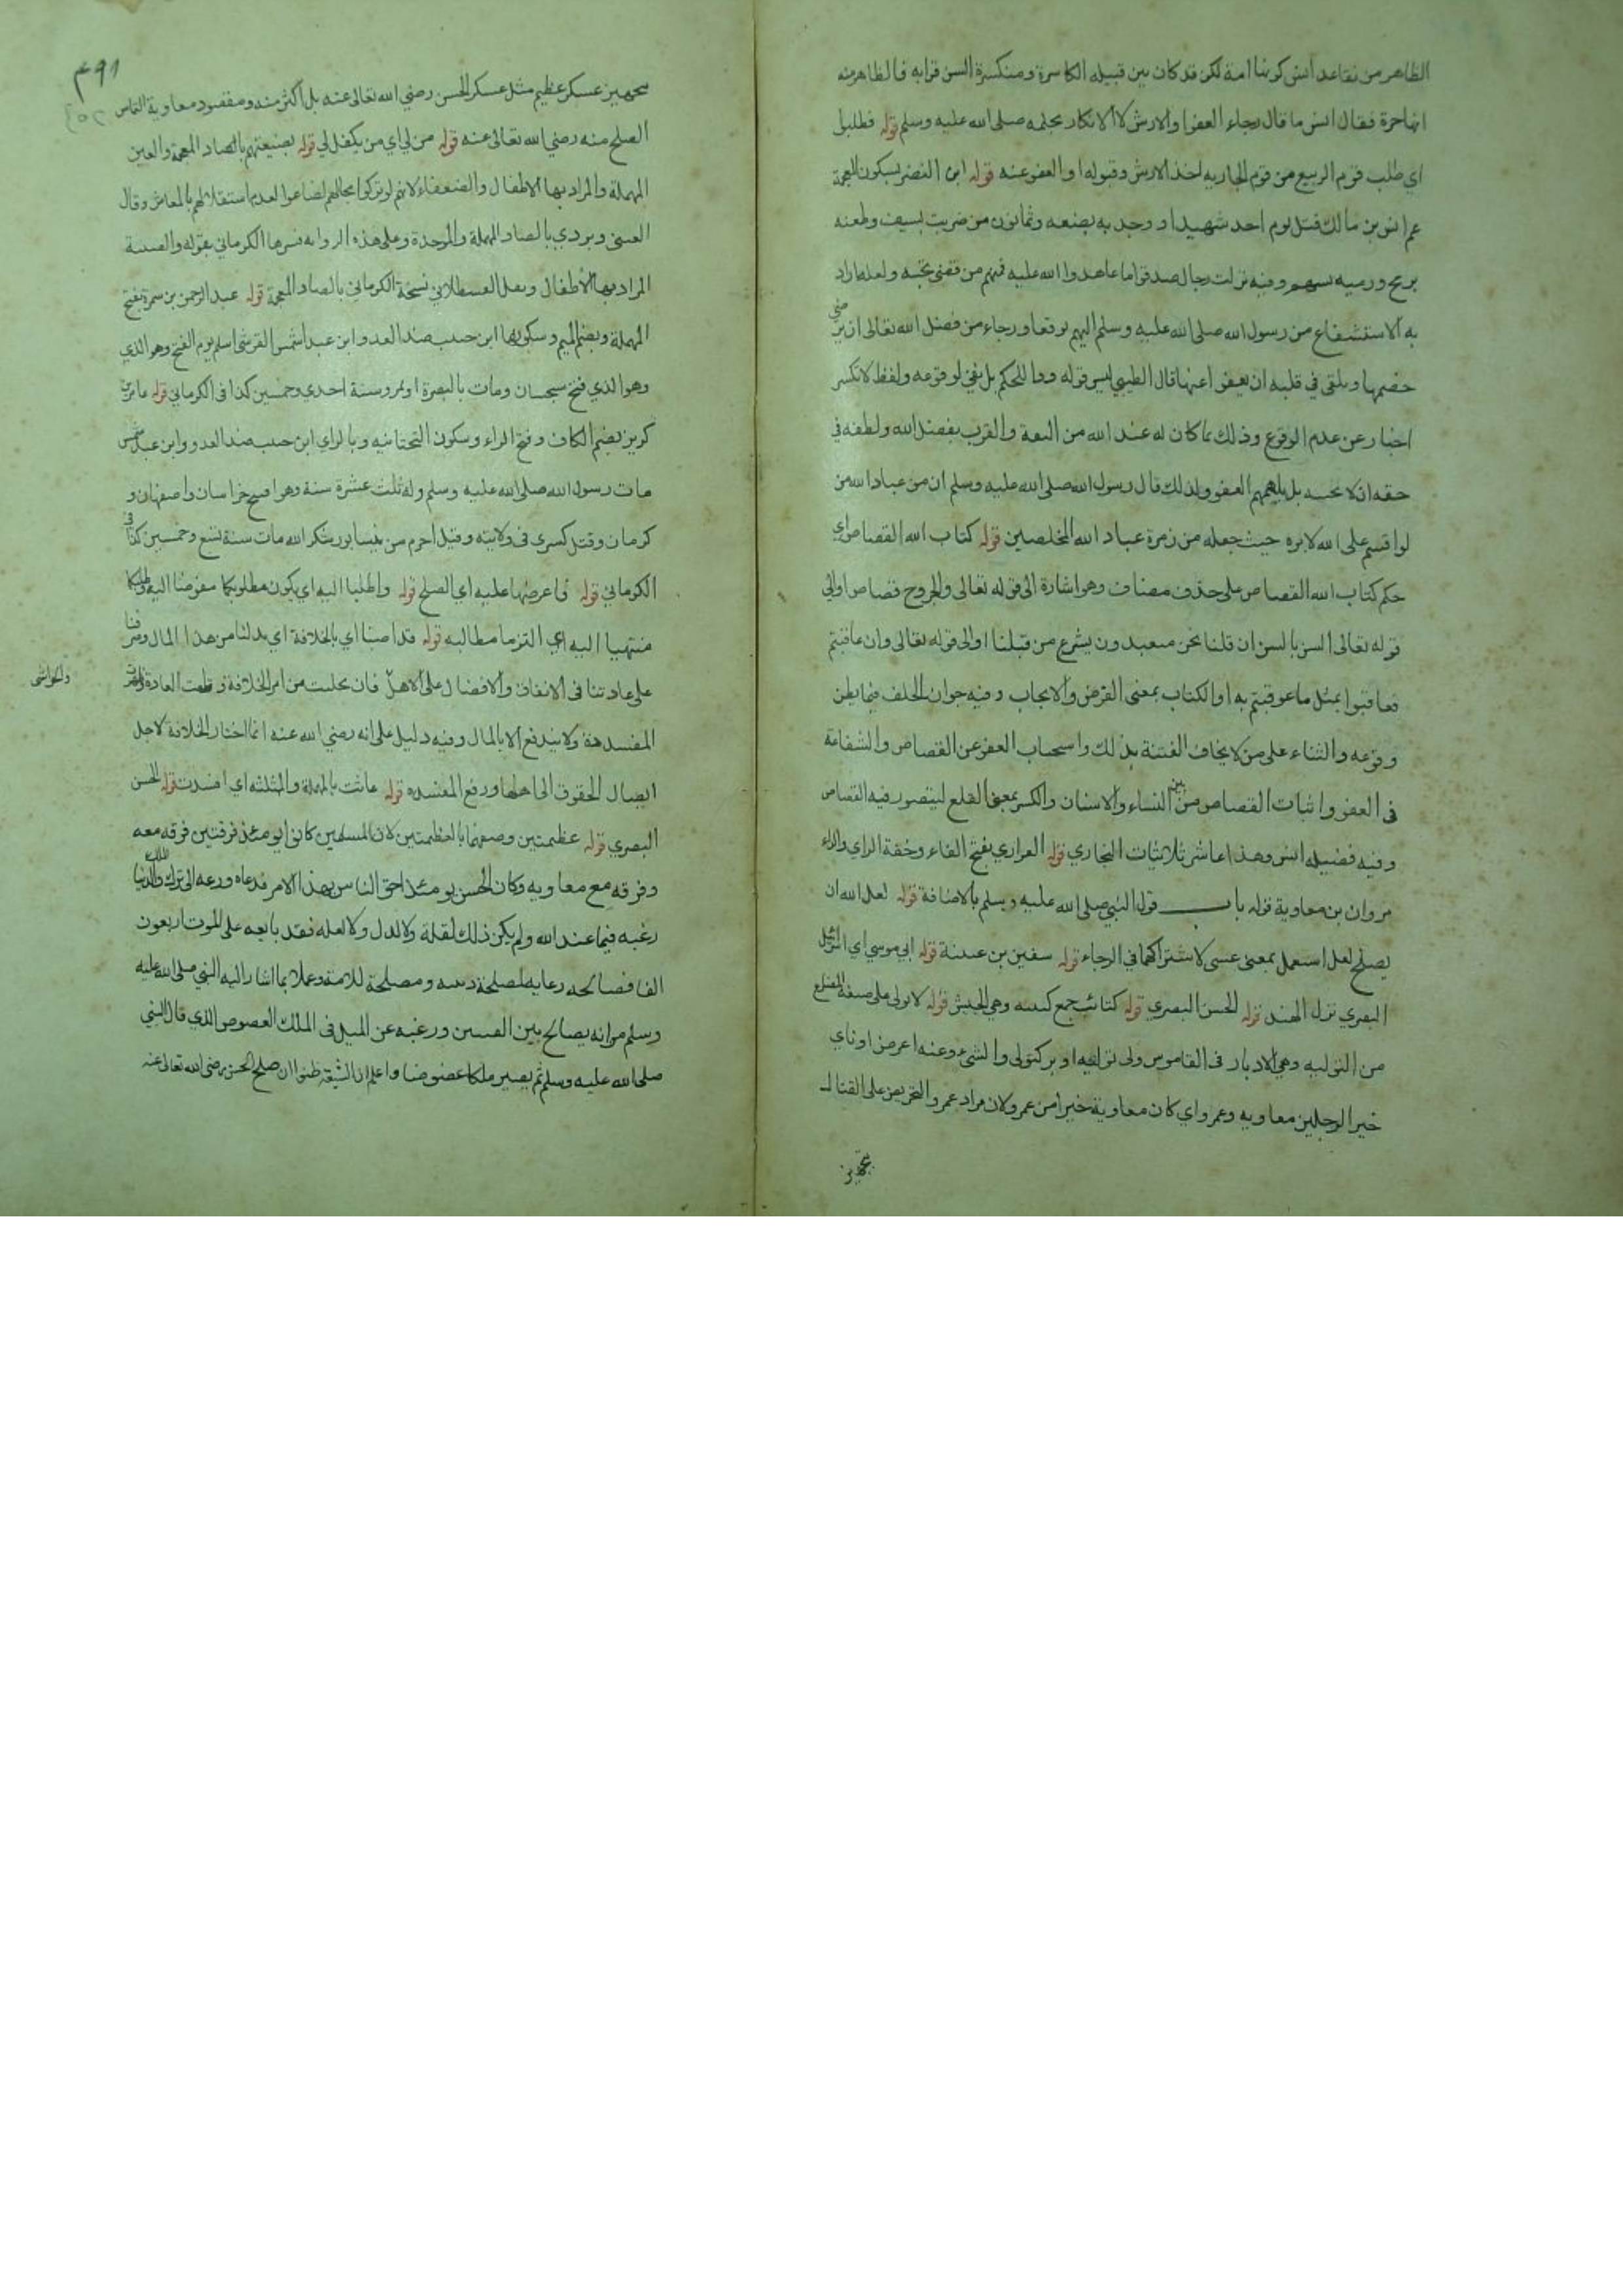 الظاهر من تقاعد أنس كونها امة لكن قد كان بين قبيلة الكاسرة ومنكسرة السن قرابه فالظاهر منه
انها حرة فقال انس ما قال رجاء العفو والارش لا الانكار بحكمه صلى الله عليه وسلم قوله فطلبوا
اي طلب قوم الربيع من قوم الجاريه اخذ الارش وقبوله او العفو عنه قوله ابن النضر بسكون المعجمة
عم انس بن مالك قتل يوم احد شهيدا و وجد به بضعه وثمانون من ضربت بسيف وطعنه
برمح ورميه بسهم وفيه نزلت رجال صدقوا ما عاهدوا الله عليه فمنهم من قضى نحبه ولعله اراد
به الاستشفاع من رسول الله صلى الله عليه وسلم اليهم توقعا ورجاء من فضل الله تعالى ان يرضي
خصمها ويلقى في قلبه ان يعفو اعنها قال الطيبي ليس قوله ردا للحكم بل نفي لوقوعه ولفظ لا تكسر
اخبار عن عدم الوقوع وذلك بما كان له عند الله من الثقة والقرب بفضل الله ولطفه في
حقه انه لا يخيبه بل يلهمهم العفو ولذلك قال رسول الله صلى الله عليه وسلم ان من عباد الله من
لو اقسم على الله لابره حيث جعله من زمرة عباد الله المخلصين قوله كتاب الله القصاص اي
حكم كتاب الله القصاص على حذف مضاف وهو اشارة الى قوله تعالى والجروح قصاص او الى
قوله تعالى السن بالسن ان قلنا نحن متعبدون بشرع من قبلنا او الى قوله تعالى وان عاقبتم
فعاقبوا بمثل ما عوقبتم به او الكتاب بمعنى الفرض والايجاب وفيه جواز الحلف فيما يظن
وقوعه والثناء على من لا يخاف الفتنة بذلك واستحباب العفو عن القصاص والشفاعة
في العفو واثبات القصاص من بين النساء والاسنان والكسر بمعنى القلع ليتصور فيه القصاص
وفيه فضيلة انس وهذا عاشر ثلاثيات البخاري قوله الفزاري بفتح الفاء وخفة الزاي والراء
مروان بن معاوية قوله باب قول النبي صلى الله عليه وسلم بالاضافة قوله لعل الله ان
يصلح لعل استعمل بمعنى عسى لاشتراكهما في الرجاء قوله سفين بن عيينة قوله ابي موسى اي اسرائيل
البصري نزل الهند قوله الحسن البصري قوله كتائب جمع كتيبه وهي الجيش قوله لا تولى على صيغة المضارع
من التوليه وهي الادبار في القاموس ولى توليه ادبر كتولى والشيء وعنه اعرض او ناي
خير الرجلين معاويه وعمرو اي كان معاوية خيرا من عمرو لان مراد عمرو التحريض على القتال
تجهيز
۴۹۱
تجهيز عسكر عظيم مثل عسكر الحسن رضي الله تعالى عنه بل اكثر منه ومقصود معاوية التماس
الصلح منه رضي الله تعالى عنه قوله من لي اي من يكفل لي قوله بضيعتهم بالضاد المعجمة والعين
المهملة والمراد بها الاطفال والضعفاء لانهم لو تركوا بحالهم لضاعوا لعدم استقلالهم بالمعاش وقال
العيني ويروي بالصاد المهملة والموحدة وعلى هذه الروايه فسرها الكرماني بقوله والصبية
المراد بها الاطفال ونقل القسطلاني نسخة الكرماني بالضاد المعجمة قوله عبد الرحمن بن سمرة بفتح
المهملة وبضم الميم وسكونها ابن حبيب ضد العدو ابن عبد شمس القرشي اسلم يوم الفتح وهو الذي
وهو الذي فتح سجستان ومات بالبصرة او بمرو سنة احدى وخمسين كذا في الكرماني قوله عامر بن
كريز بضم الكاف وفتح الراء وسكون التحتانيه وبالزاي ابن حبيب ضد العدو وابن عبد شمس
مات رسول الله صلى الله عليه وسلم وله ثلث عشرة سنة وهو افتتح خراسان واصفهان و
كرمان وقتل كسرى في ولايته وقيل احرم من نيسابور شكر الله مات سنة تسع وخمسين كذا في
الكرماني قوله فاعرضها عليه اي الصلح قوله واطلبا اليه اي يكون مطلوبكما مفوضا اليه وطلبكما
منتهيا اليه اي التزما مطالبه قوله قد اصبنا اي بالخلافة اي بدلنا من هذا المال وصرفنا
على عادتنا في الانفاق والافضال على الاهل فان تخليت من امر الخلافة وقطعت العادة
المفسدة ولا يندفع الا بالمال وفيه دليل على انه رضي الله عنه انما اختار الخلافة لاجل
ايصال الحقوق الى اهلها ورفع المفسده قوله عاثت بالمهملة والمثلثه اي افسدت قوله الحسن
البصري قوله عظيمتين وصفهما بالعظيمتين لان المسلمين كانوا يومئذ فرقتين فرقه معه
وفرقه مع معاويه وكان الحسن يومئذ احق الناس بهذا الامر فدعاه ورعه الى ترك الملك والدنيا
رغبه فيما عند الله ولم يكن ذلك لقلة ولا لذل ولا لعله فقد بايعه على الموت اربعون
الفا فصالحه رعايه لمصلحة دينه ومصلحة للامة وعملا بما اشار اليه النبي صلى الله عليه
وسلم من انه يصالح بين الفئتين ورغبه عن الميل في الملك العضوض الذي قال النبي
صلى الله عليه وسلم ثم يصير ملكا عضوضا واعلم ان الشيعة ظنوا ان صلح الحسن رضي الله تعالى عنه
والحواشى